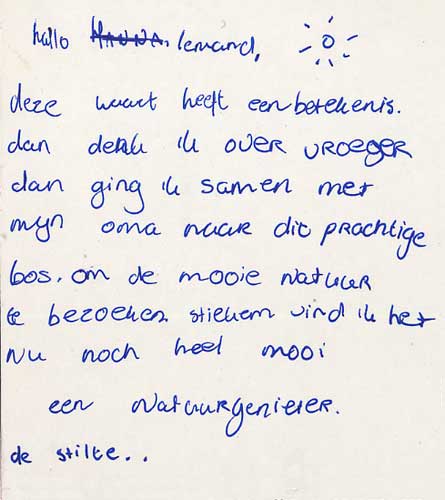 hallo HANNA. Iemand,
deze kaart heeft een betekenis.
dan denk ik over vroeger
dan ging ik samen met
mijn oma naar dit prachtige
bos. om de mooie natuur
te bezoeken. stiekem vind ik het
nu noch heel mooi
een Natuurgenieter.
de stilte..